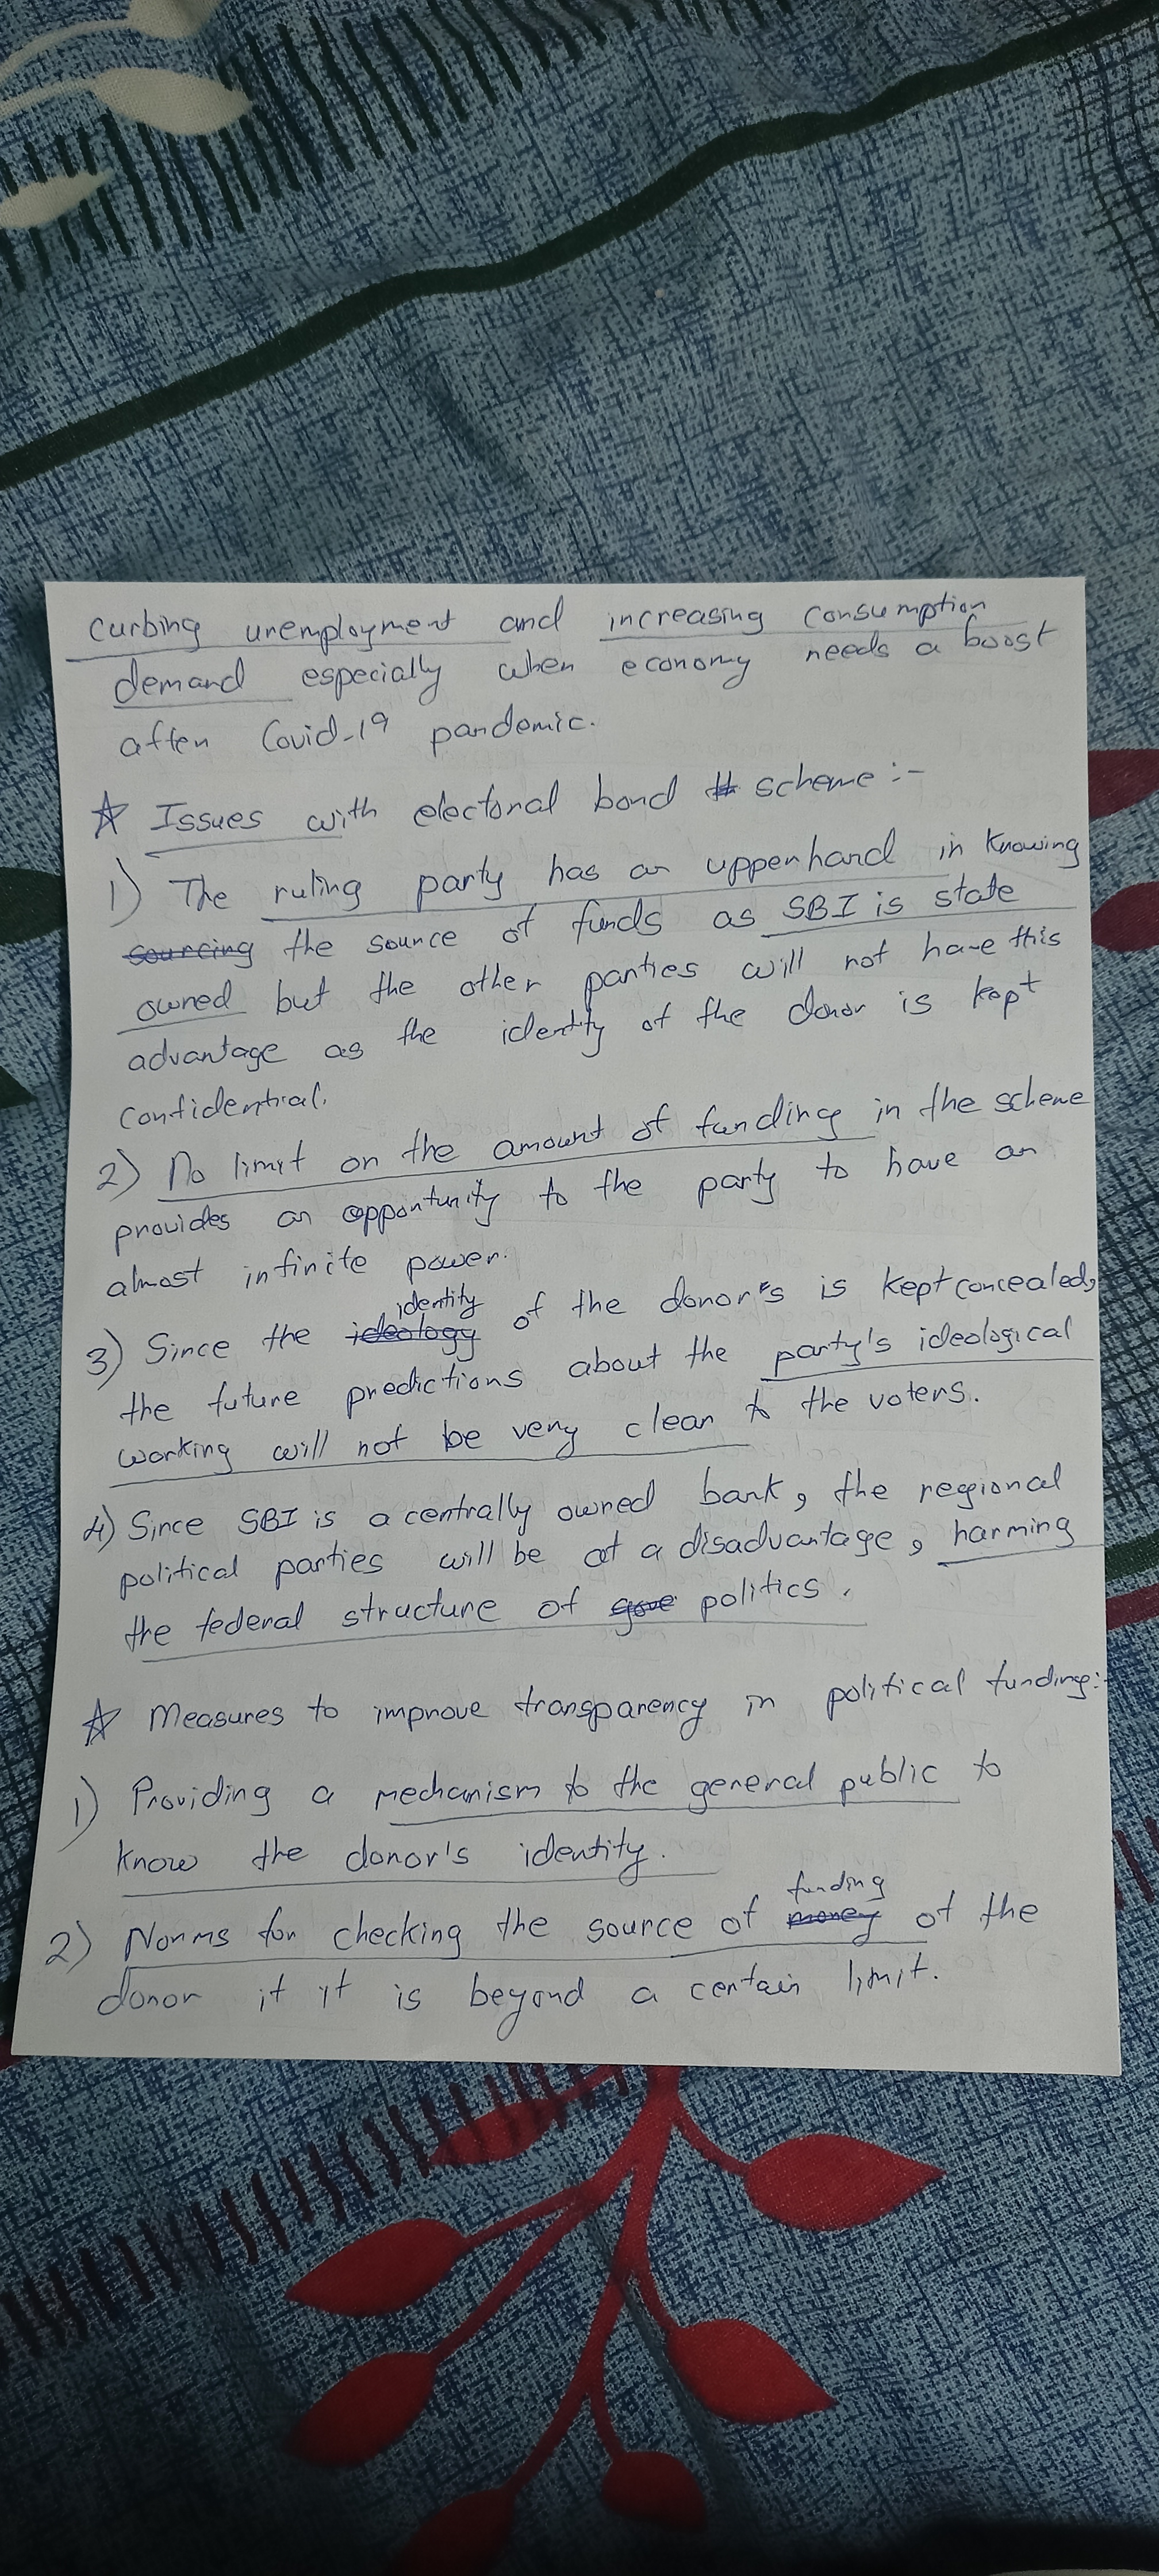 curbing unemployment and increasing consumption
demand especially when economy needs a boost
after Covid-19 pandemic.
☆ Issues with electoral bond scheme :-
1) The ruling party has an upperhand in knowing
sourcing the source of funds as SBI is state
owned but the other parties will not have this
advantage as the identity of the donor is kept
confidential.
2) No limit on the amount of funding in the scheme
provides an opportunity to the party to have an
almost infinite power.
identity
3) Since the ideology of the donor's is kept concealed,
the future predictions about the party's ideological
working will not be very clear to the voters.
4) Since SBI is a centrally owned bank, the regional
political parties will be at a disadvantage, harming
the federal structure of gove politics.
☆ Measures to improve transparency in political funding:-
1) Providing a mechanism to the general public to
know the donor's identity.
funding
2) Norms for checking the source of money of the
donor if it is beyond a certain limit.